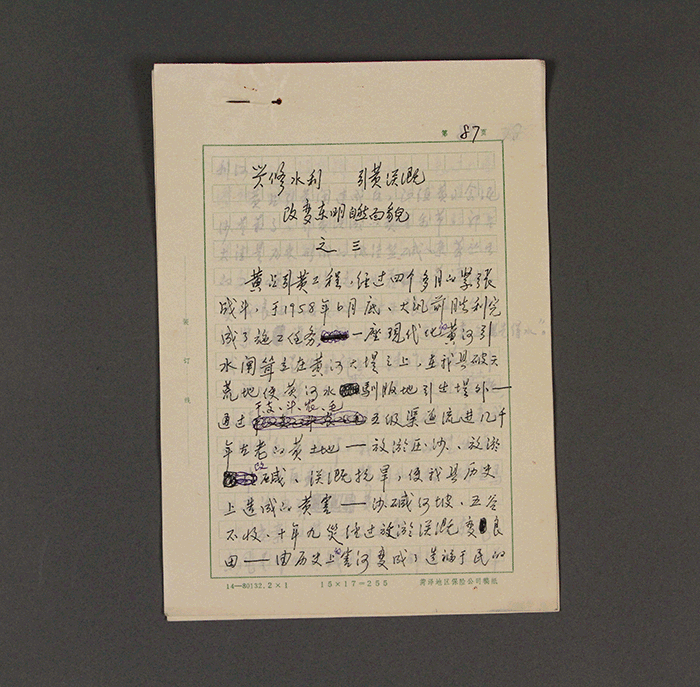 第 87 页
兴修水利 引黄淤溉
改变东明自然面貌
之三
黄占引黄工程,经过四个多月的紧张
战斗,于1958年6月底、大汛前胜利完
成了施工任务 一座现代化的黄河引
水闸耸立在黄河大堤之上,在我县破天
荒地使黄河水驯服地引出堤外——
干、支、斗、农、毛
通过 五级渠道流进几千
年古老的黄土地——放淤压沙、放淤
改碱、淤溉抗旱,使我县历史
上造成的黄害——沙碱河坡、五谷
不收、十年九灾经过放淤淤溉变良
田——由历史上的害河变成了造福于民的
装订线
14—80132.2×1 15×17=255 菏泽地区保险公司稿纸